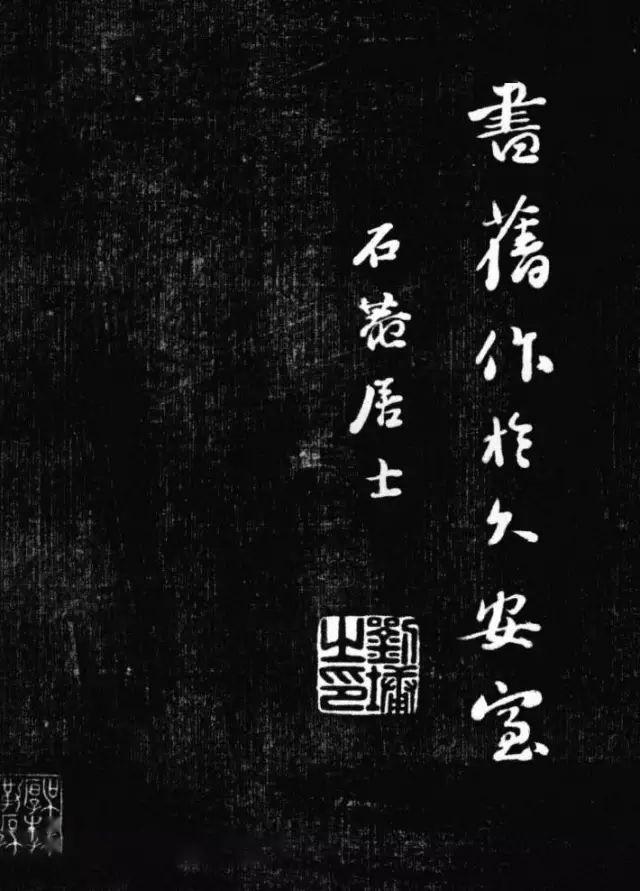 書舊作於久安室
石菴居士
劉墉之印